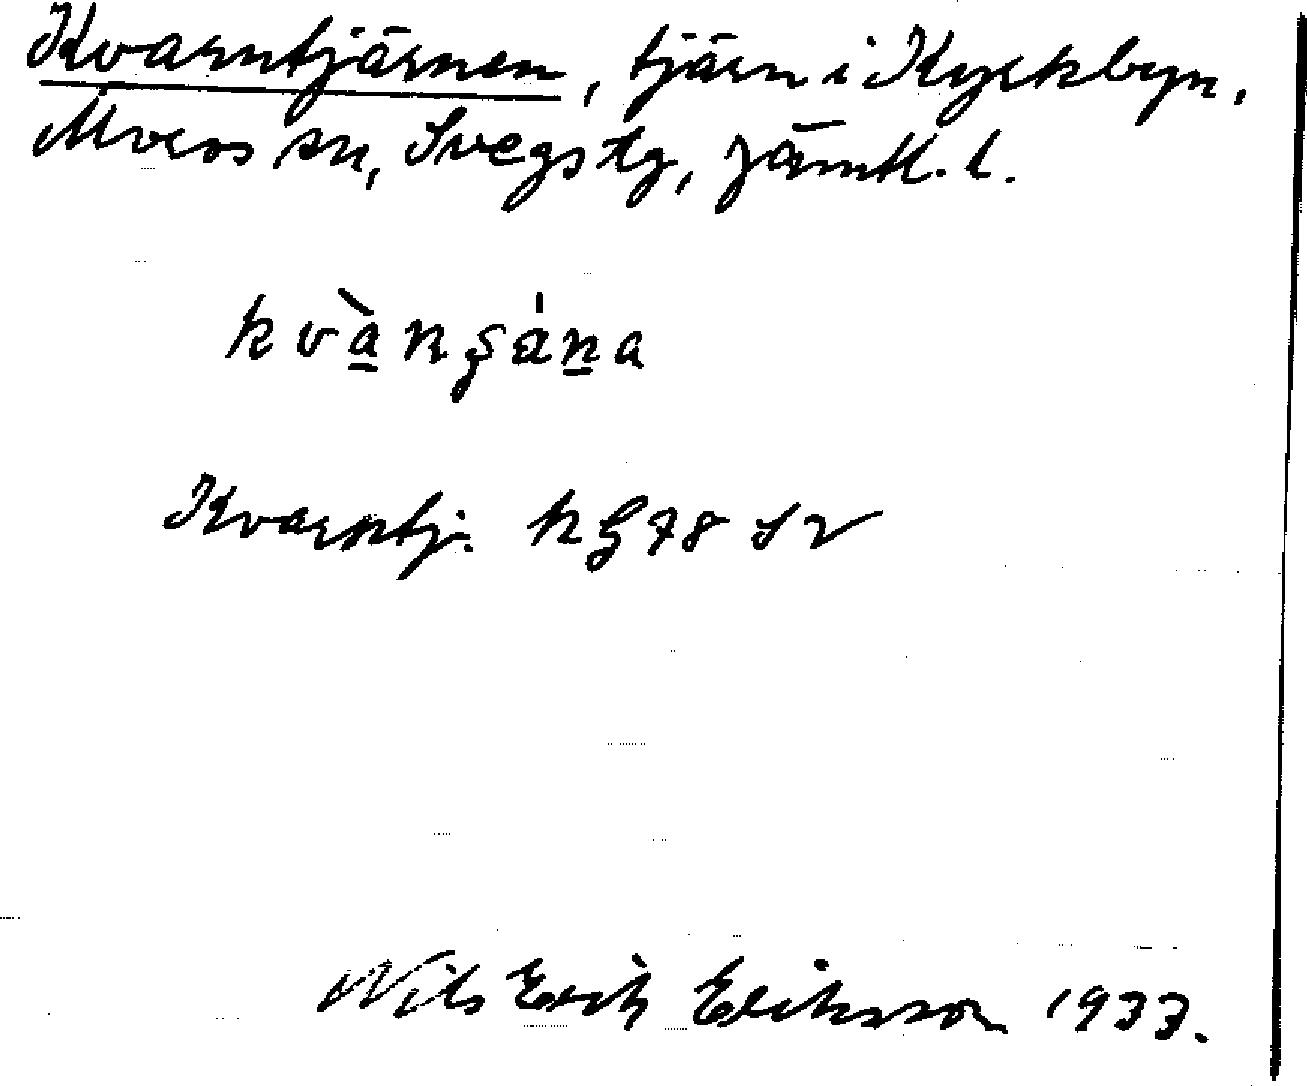 Kvarntjärnen, tjärn i Kyrkbyn,
Älvros sn, Svegs tg, Jämtl. l.
kvànʂána
Kvarntj.
Nils Erik Eriksson 1933.